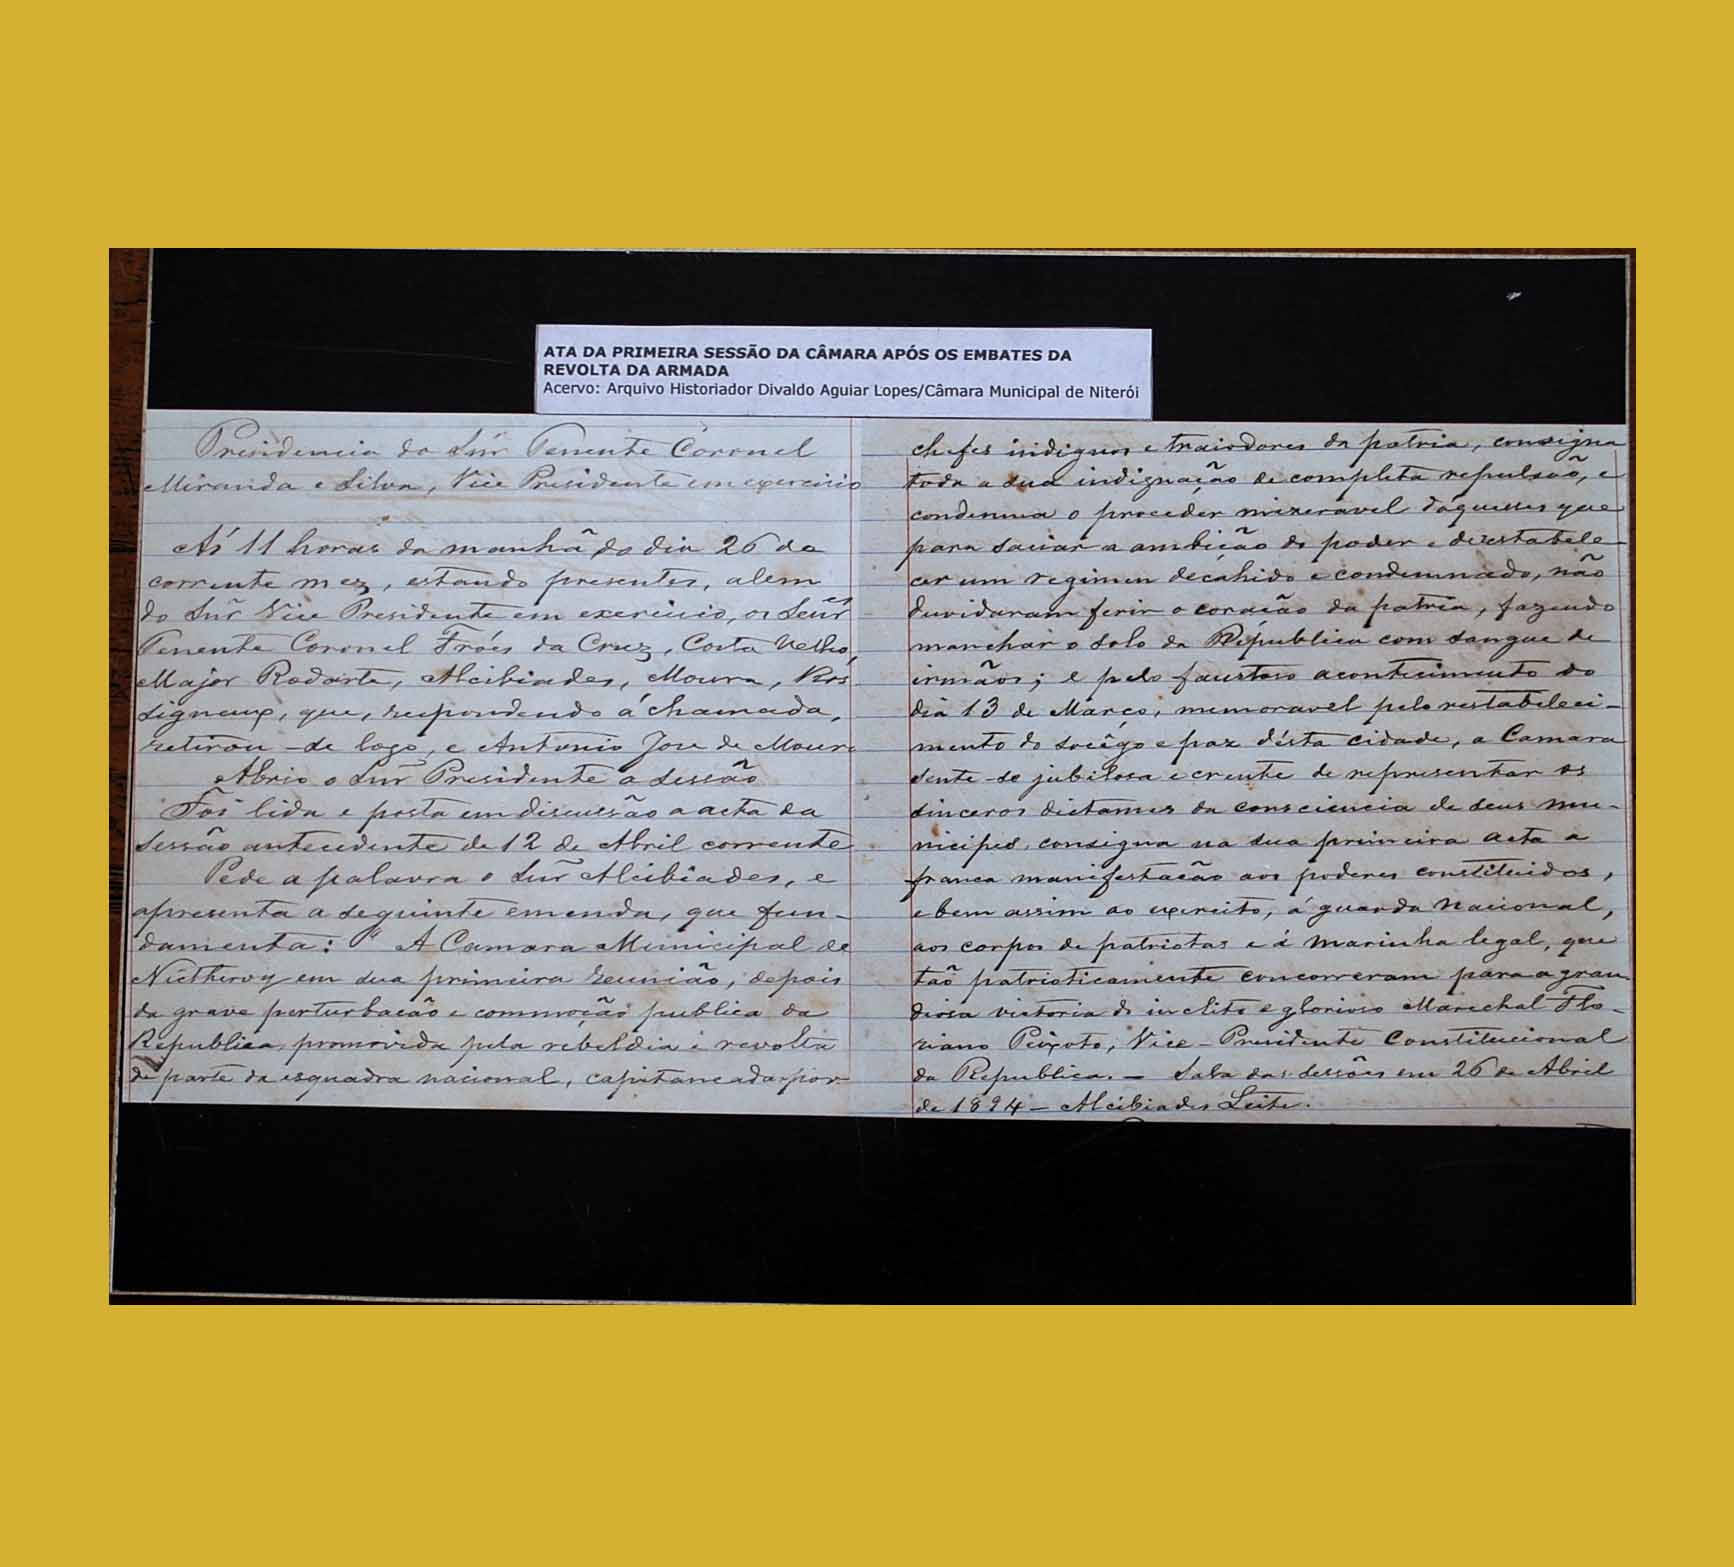 ATA DA PRIMEIRA SESSÃO DA CÂMARA APÓS OS EMBATES DA
REVOLTA DA ARMADA
Acervo: Arquivo Historiador Divaldo Aguiar Lopes/Câmara Municipal de Niterói
Presidencia do Snr Tenente Coronel
Miranda e Silva, Vice Presidente em exercicio
Ás 11 horas da manhã do dia 26 do
corrente mez, estando presentes, alem
do Snr Vice Presidente em exercicio, os Senres
Tenente Coronel Fróes da Cruz, Costa Velho,
Major Rodarte, Alcibiades, Moura,
signeux, que, respondendo á chamada,
retirou-se logo, e Antonio Jose de Moura
Abrio o Snr Presidente a sessão
Foi lida e posta em discussão a acta da
sessão antecedente de 12 de Abril corrente
Pede a palavra o Snr Alcibiades, e
apresenta a seguinte emenda, que fun-
damenta: " A Camara Municipal de
Nictheroy em sua primeira reunião, depois
da grave perturbacão e commoção publica da
Republica, promovida pela rebeldia e revolta
de parte da esquadra nacional, capitaneada por
chefes indignos e traiodores da patria, consigna
toda a sua indignação de completa repulsaõ, e
condemna o proceder mizeravel d'aquelles que
para saciar a ambição do poder e
cer um regimen decahido e condemnado, não
duvidaram ferir o coração da patria, fazendo
manchar o solo da Républica com sangue de
irmãos; e pelo faustoso acontecimento do
dia 13 de Março, memoravel pelo restabeleci-
mento do socêgo e paz désta cidade, a Camara
sente-se jubilosa e crente de representar os
sinceros dictames da consciencia de seus mu-
nicipes, consigna na sua primeira acta a
franca manifestacão aos poderes constituidos,
e bem assim ao exercito, á guarda Nacional,
aos corpos de patriotas e á marinha legal, que
taõ patrioticamente concorreram para a gran-
diosa victoria do inclito e glorioso Marechal Flo-
riano Peixoto, Vice-Presidente Constitucional
da Republica. — Sala das sessões em 26 de Abril
de 1894 — Alcibiades Leite.